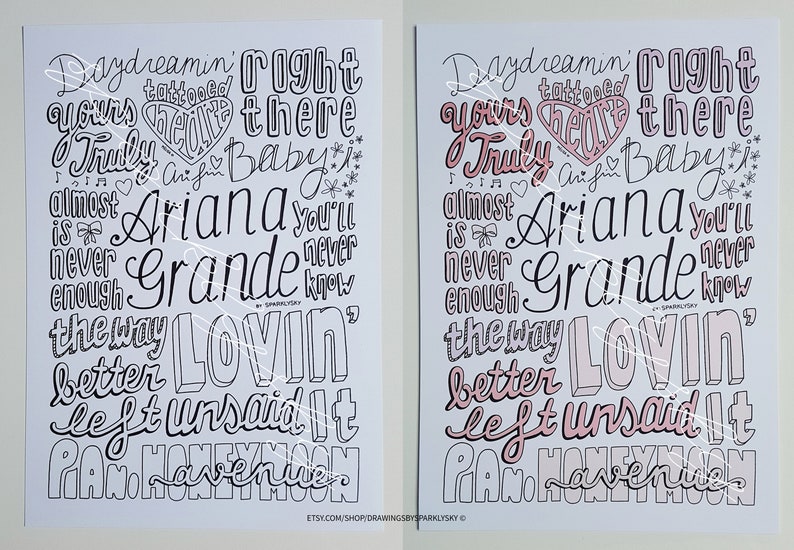 Daydreamin' right
yours tattooed heart there
Truly Ari Baby i
almost Ariana you'll
is never Grande never
enough know
BY SPARKLYSKY
the way Lovin'
better
left unsaid It
PIANO HONEYMOON
avenue
Daydreamin' right
yours tattooed heart there
Truly Ari Baby i
almost Ariana you'll
is never Grande never
enough know
BY SPARKLYSKY
the way Lovin'
better
left unsaid It
PIANO HONEYMOON
avenue
ETSY.COM/SHOP/DRAWINGSBYSPARKLYSKY ©